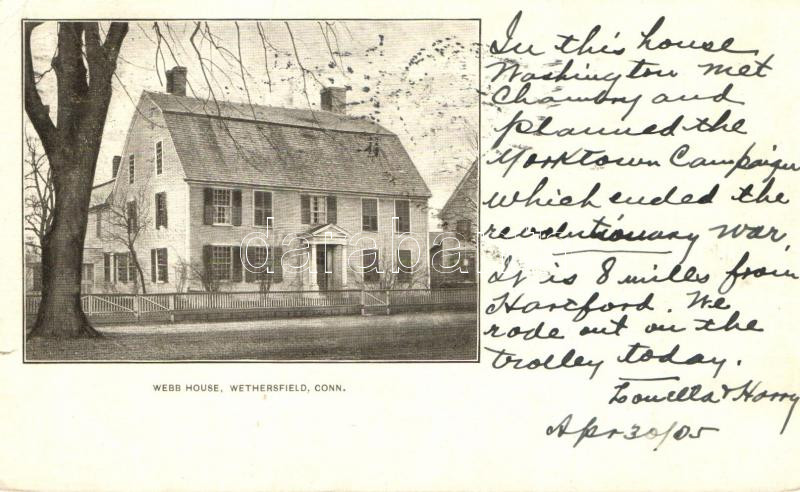 WEBB HOUSE, WETHERSFIELD, CONN.
In this house
Washington met
Chambry and
planned the
Yorktown Campaign
which ended the
revolutionary war.
It is 8 miles from
Hartford. We
rode out on the
trolley today.
Louella & Harry
Apr 30/05
darabanth